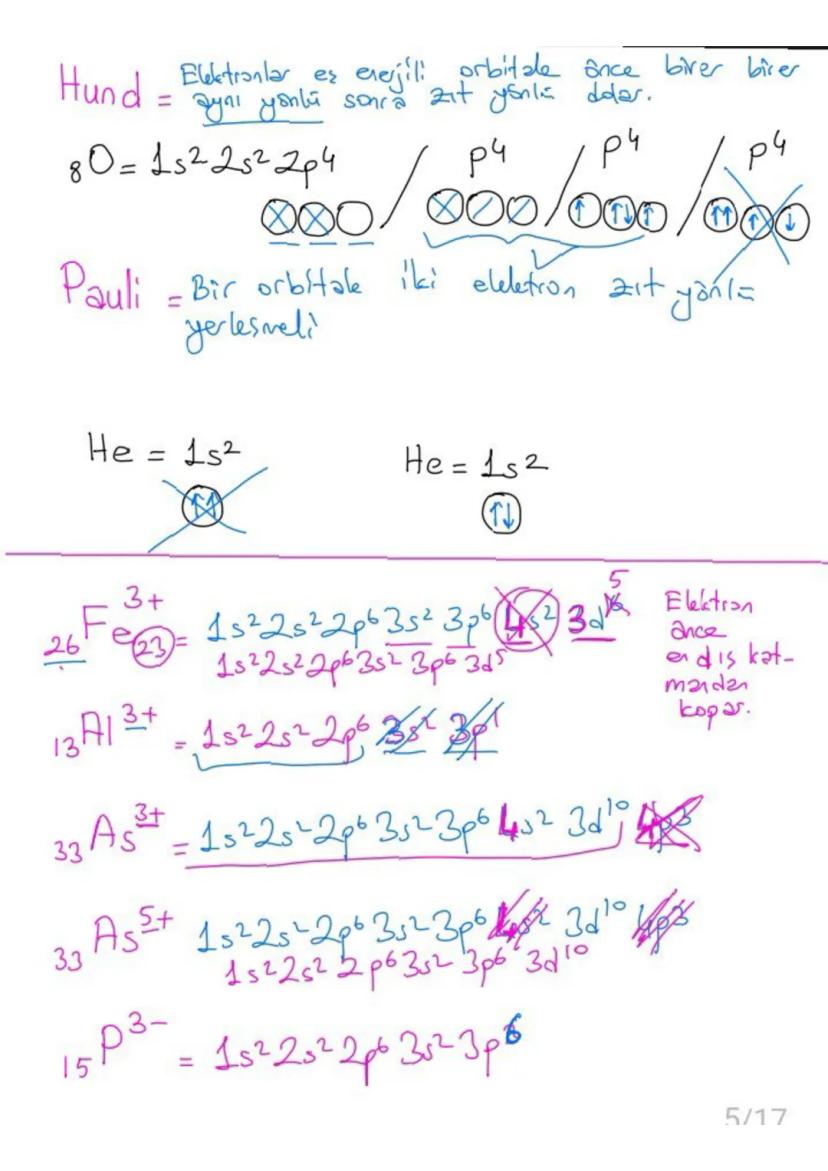 Hund = Elektronlar eş enerjili orbitale önce birer birer
aynı yönlü sonra zıt yönlü dolar.
₈O = 1s² 2s² 2p⁴ / p⁴ / p⁴ / p⁴
Pauli = Bir orbitale iki elektron zıt yönlü
yerleşmeli
He = 1s² He = 1s²
₂₆Fe³⁺ 23 = 1s² 2s² 2p⁶ 3s² 3p⁶ 4s² 3d⁶ 5
1s² 2s² 2p⁶ 3s² 3p⁶ 3d⁵
Elektron
önce
en dış kat-
mandan
kopar.
₁₃Al³⁺ = 1s² 2s² 2p⁶ 3s² 3p¹
₃₃As³⁺ = 1s² 2s² 2p⁶ 3s² 3p⁶ 4s² 3d¹⁰ 4p³
₃₃As⁵⁺ 1s² 2s² 2p⁶ 3s² 3p⁶ 4s² 3d¹⁰ 4p³
1s² 2s² 2p⁶ 3s² 3p⁶ 3d¹⁰
₁₅P³⁻ = 1s² 2s² 2p⁶ 3s² 3p⁶
5/17